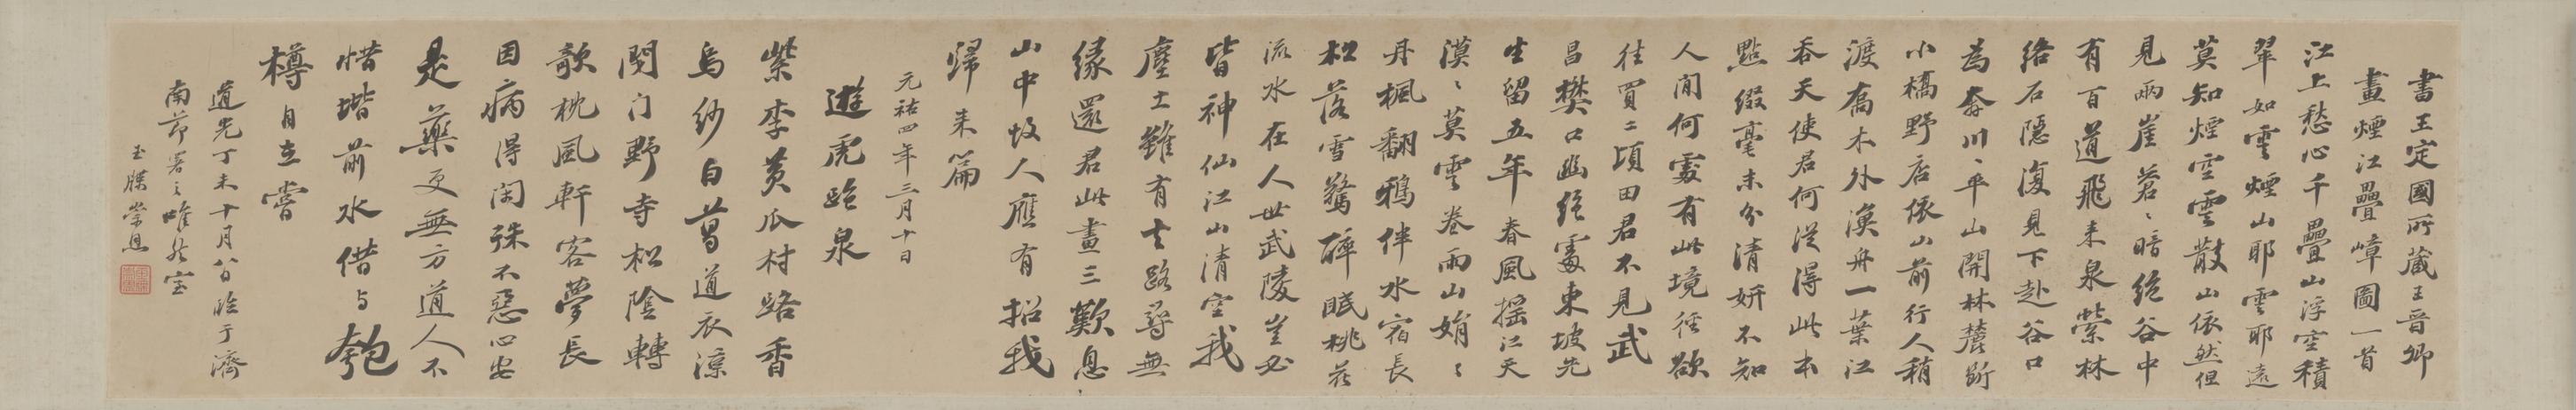 書王定國所藏王晉卿
畫煙江疊嶂圖一首
江上愁心千疊山浮空積
翠如雲煙山耶雲耶遠
莫知煙空雲散山依然但
見兩崖蒼〻暗絕谷中
有百道飛來泉縈林
絡石隱復見下赴谷口
為奔川〻平山開林麓斷
小橋野店依山前行人稍
渡喬木外漁舟一葉江
吞天使君何從得此本
點綴毫末分清妍不知
人間何處有此境徑欲
往買二頃田君不見武
昌樊口幽絕處東坡先
生留五年春風搖江天
漠〻莫雲卷雨山娟〻
丹楓翻鴉伴水宿長
松落雪驚醉眠桃花
流水在人世武陵豈必
皆神仙江山清空我
塵土雖有去路尋無
緣還君此畫三歎息
山中故人應有招我
歸來篇
元祐四年三月十日
遊虎跑泉
紫李黃瓜村路香
烏紗白葛道衣涼
閉門野寺松陰轉
欹枕風軒客夢長
因病得閑殊不惡心安
是藥更無方道人不
惜堦前水借與匏
樽自在嘗
道光丁未十月八日臨于濟
南節署之唯然室
玉牒崇恩